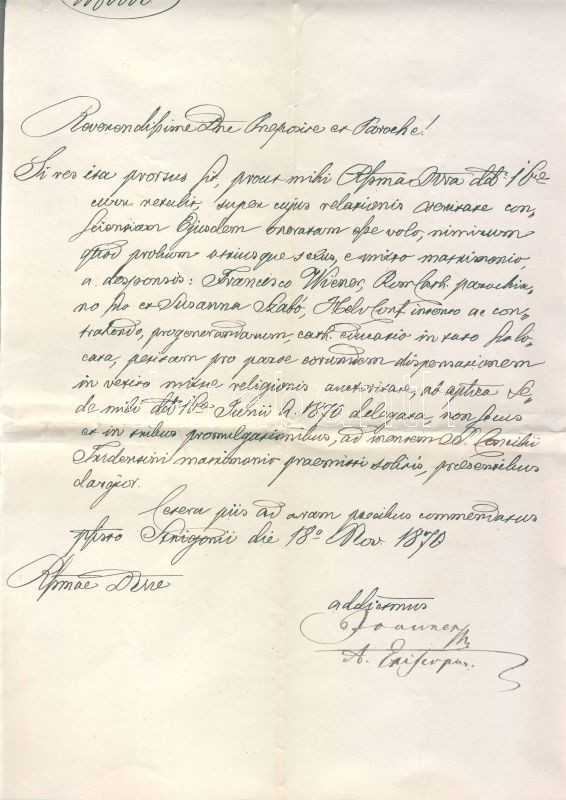 Reverendissime Dne Praeposite et Paroche!
Si res ita prorsus sit, prout mihi Rsma Dttio Vra ddt. 16ae
curr. retulit, super cujus relationis veritate con,
scientiam Ejusdem oneratam esse volo, nimirum
quod prolium utriusque sexus, e mixto matrimonio,
a desponsis: Francisco Wiener, Rom Cath. parochia,
no suo et Susanna Szabó, Helv Conf intento ac con,
trahendo, progenerandarum, cath. educatio in tuto sit lo,
cata, petitam pro parte eorundem dispensationem
in vetito mixtae religionis auctoritate, ab aptca Se,
de mihi ddt 16a Junii A 1870 delegata, non secus
et in tribus promulgationibus, ad mentem SS. Concilii
Tridentini matrimonio praemitti solitis, praesentibus
elargior.
Cetera piis ad aram precibus commendatus
Strigonii die 18a Nov. 1870
Rsmae Dttis Vrae
addictmus
Joannes
A. Episcopus.